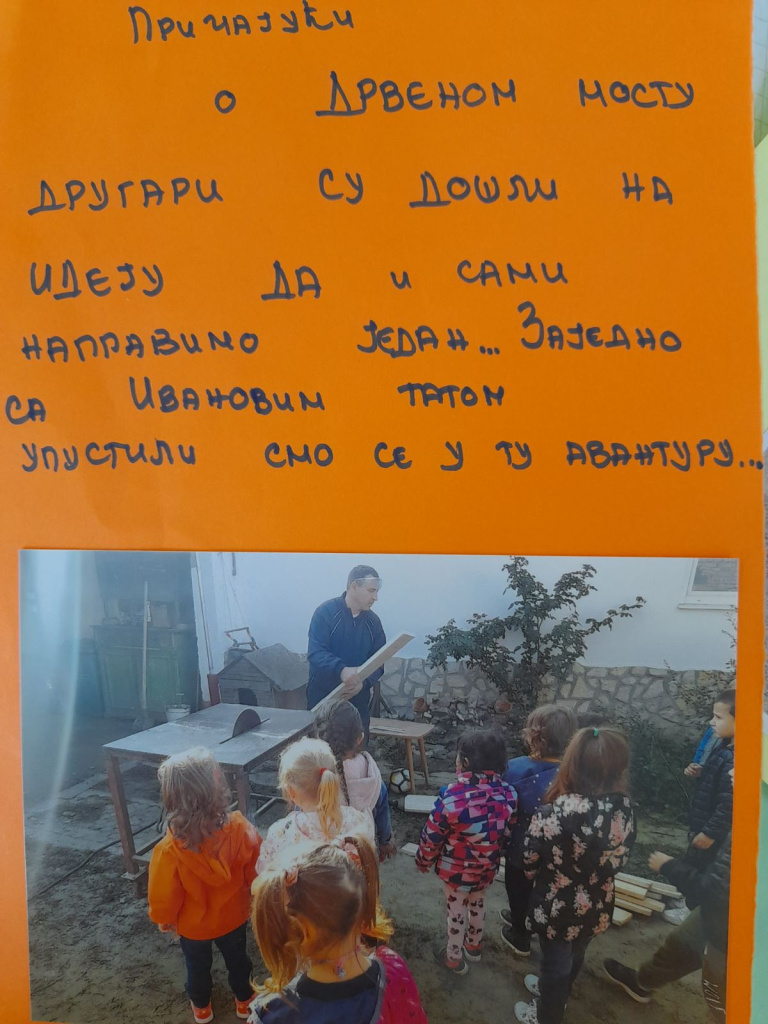 Причајући
о Дрвеном мосту
другари су дошли на
идеју да и сами
направимо један... Заједно
са Ивановим татом
упустили смо се у ту авантуру...